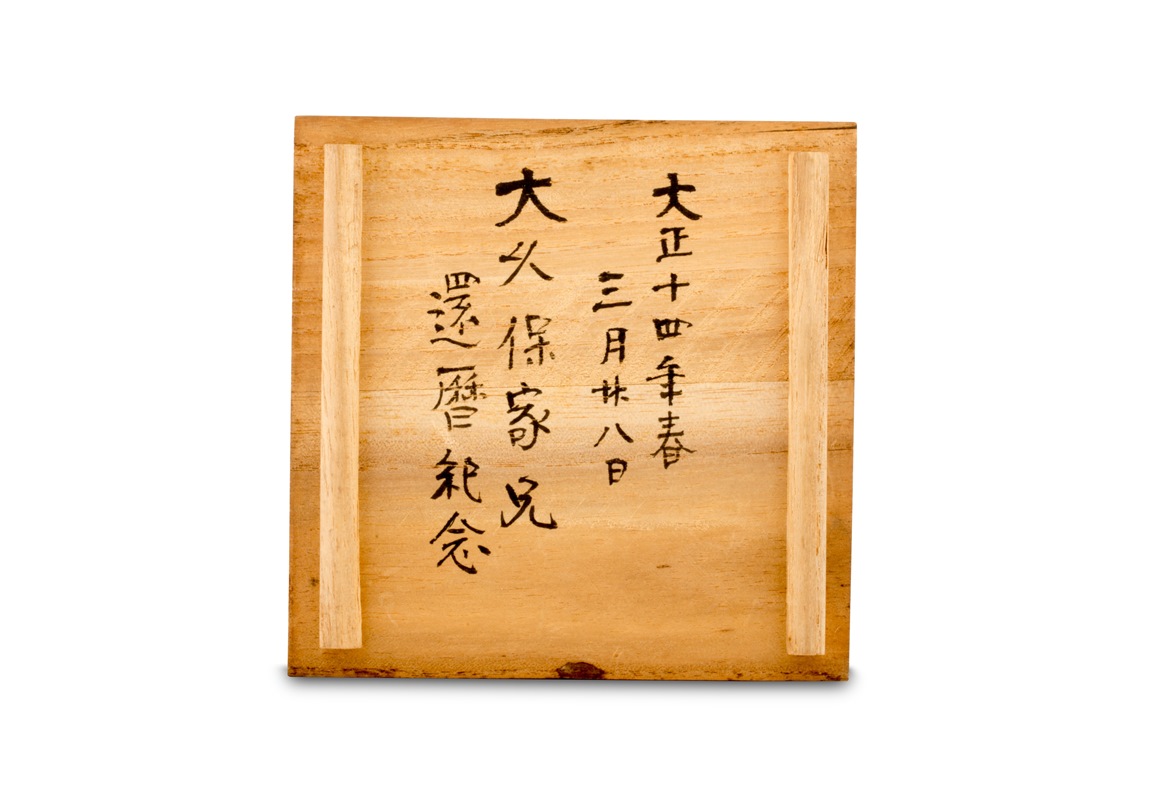 大正十四年春
三月廿八日
大久保家兄
還暦紀念